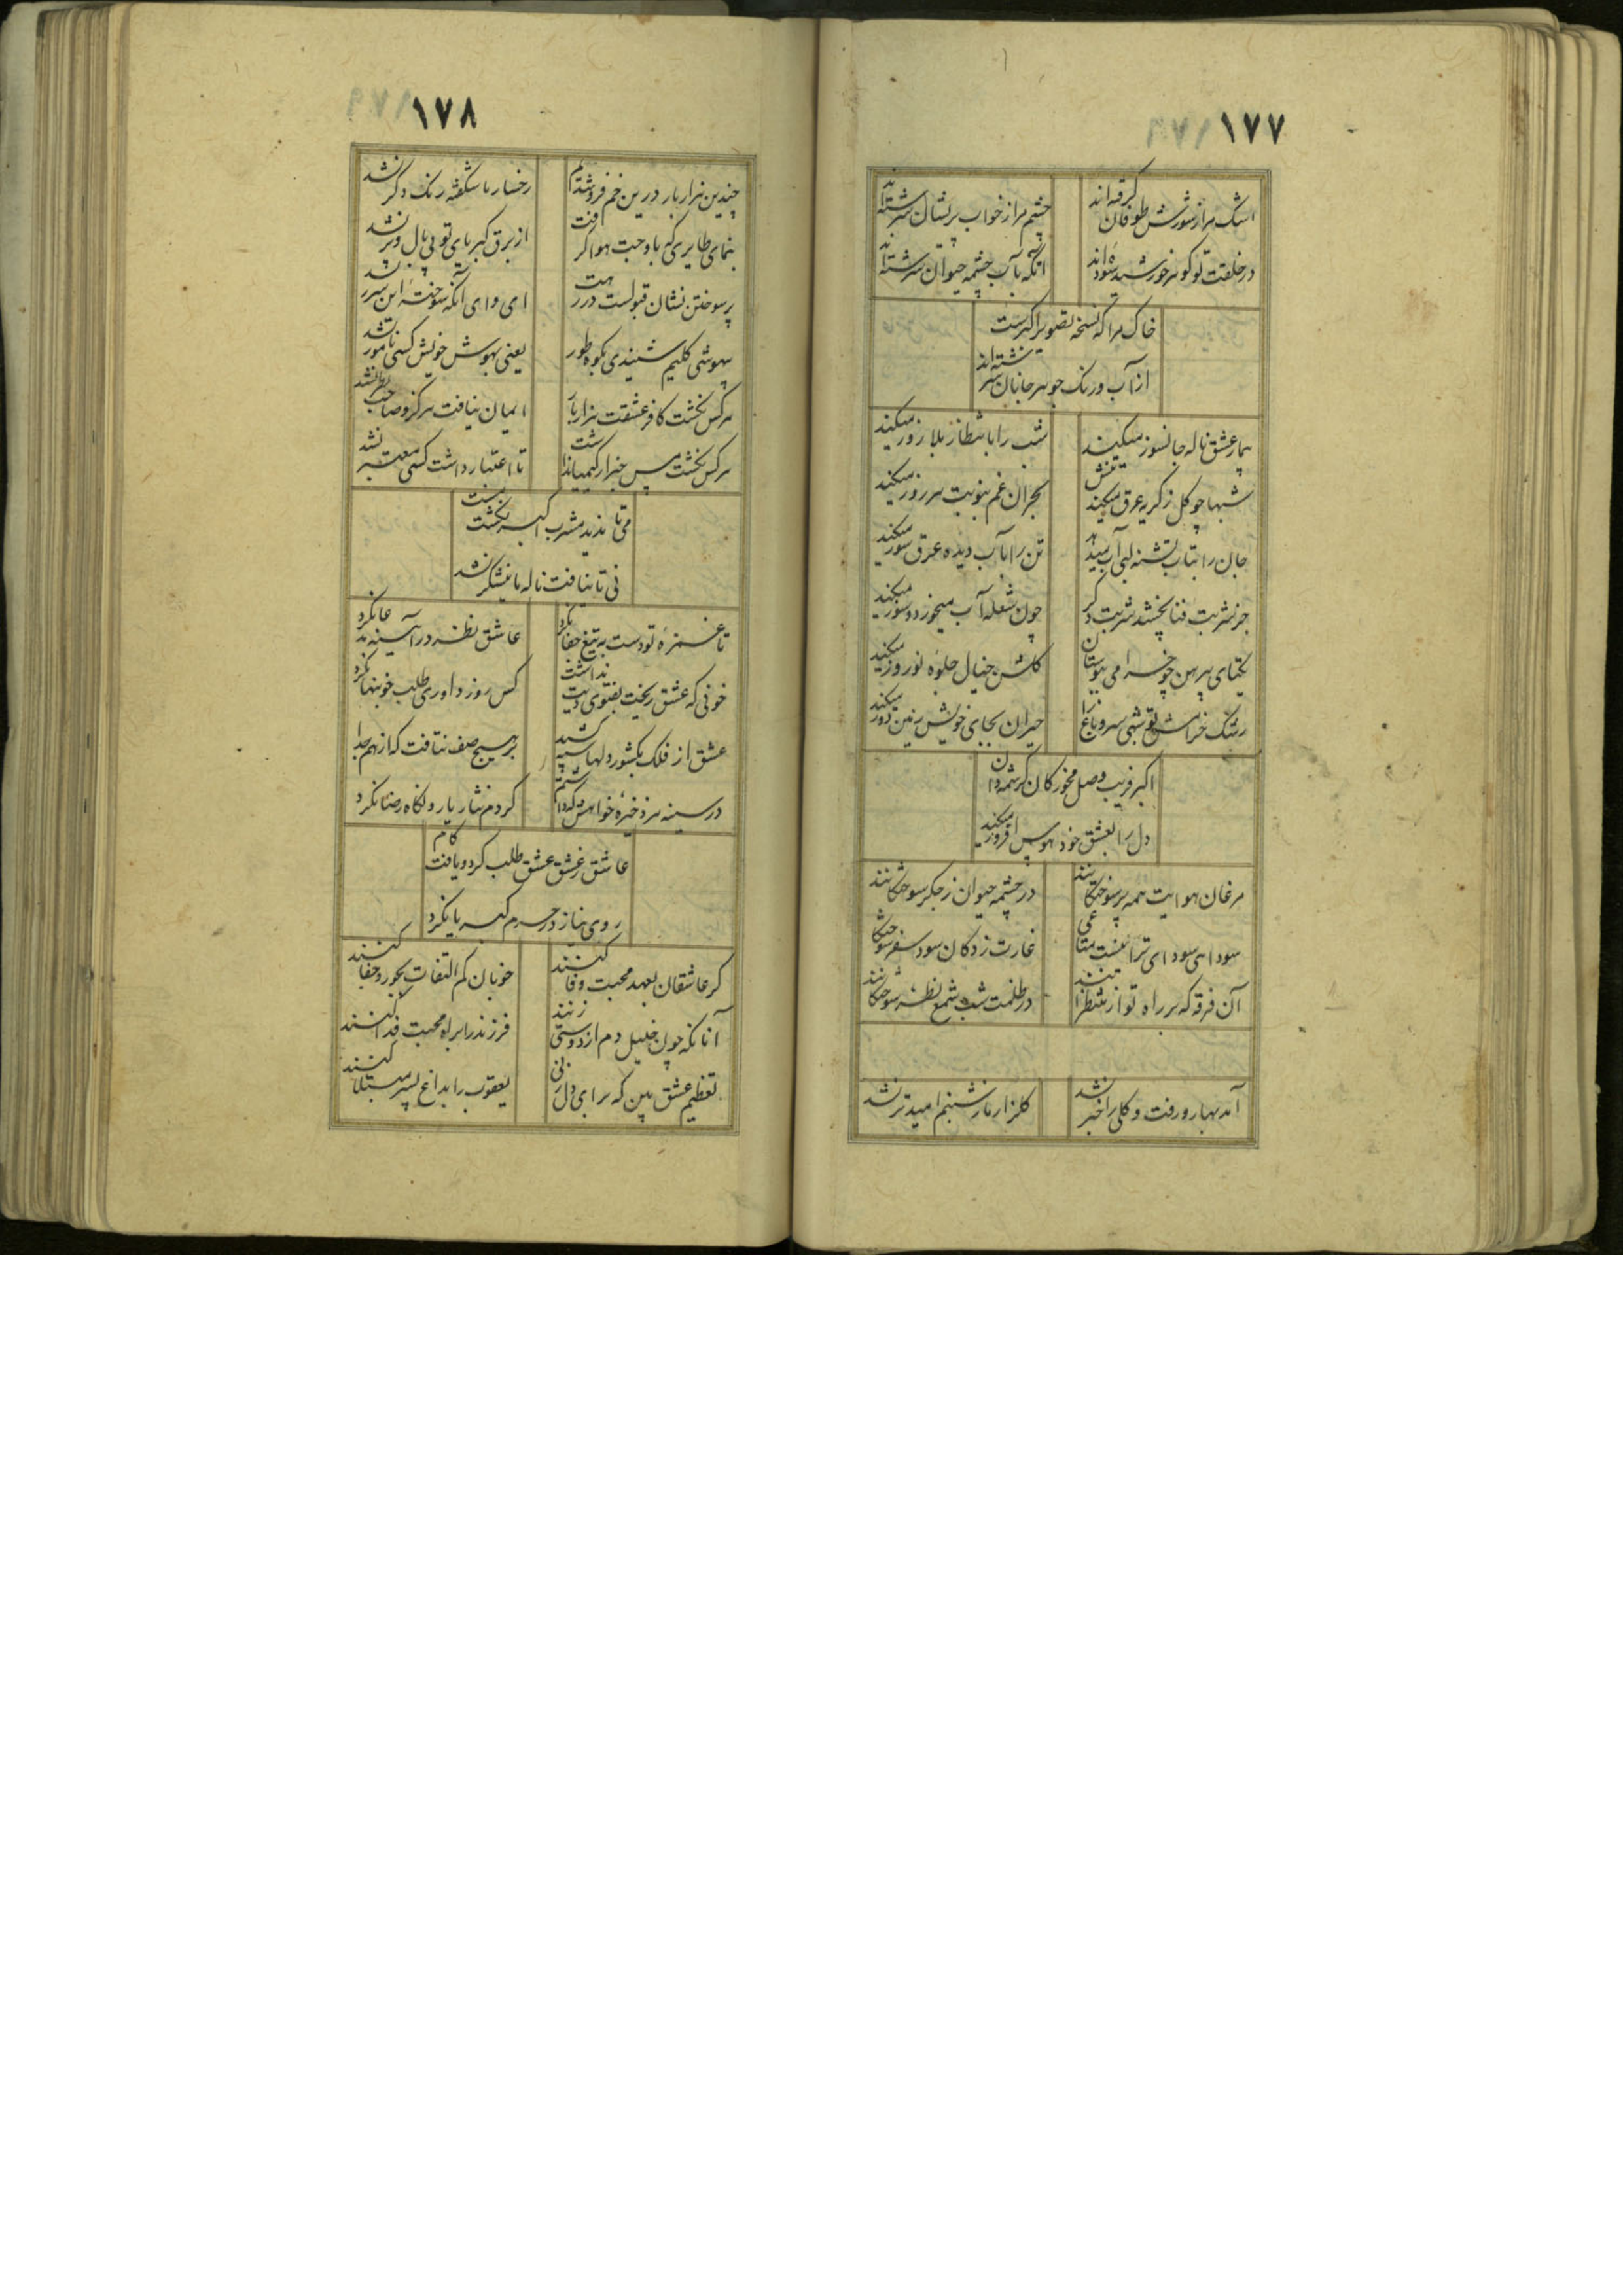 ۱۷۷
اشک مرا ز شورش طوفان گرفته‌اند
چشم مرا ز خواب پریشان سرشته‌اند
در خلقت تو گوهر خورشید سوده‌اند
آنگه بآب چشمه حیوان سرشته‌اند
خاک مرا که نسخه تصویر اکبرست
از آب و رنگ جوهر جانان سرشته‌اند
بیمار عشق ناله جانسوز میکند
شب را باشظار بلا روز میکند
شبها چو گل ز گریه عرق میکند تنش
بحران غم بنوبت هر روز میکند
جان را بتاب تشنه لبی آب میدهد
تن را بآب دیده عرق سوز میکند
جز شربت فنا نچشد شربت دگر
چون شعله آب میخورد و سوز میکند
یکتای پیرهن چو خرامی ببوستان
گلشن خیال جلوه نوروز میکند
رشک خرامش تو شبی سرو باغ را
حیران بجای خویش زمین دوز میکند
اکبر فریب وصل مخور کان کرشمه دان
دل را بعشق خود هوس افروز میکند
مرغان هوایت همه پر سوختگانند
در چشمه حیوان ز جگر سوختگانند
سودایی سودای ترا نیست متاعی
غارت زدگان سود سفر سوختگانند
آن فرقه که بر راه تو از منتظرانند
در ظلمت شب شمع نظر سوختگانند
آمد بهار و رفت و گلی را خبر نشد
گلزار ما ز شبنم امید تر نشد
۱۷۸
چندین هزار بار درین خم فرو شدیم
رخسار ما شکفته رنگ دگر نشد
بنمای طایری که باوجت هوا گرفت
از برق کبریای تو بی بال و پر نشد
پر سوختن نشان قبولست در رهت
ای وای آنکه سوخته این شرر نشد
بیهوشی کلیم شنیدی بکوه طور
یعنی بهوش خویش کسی نامور نشد
هر کس نگشت کافر عشقت هزار بار
ایمان نیافت هرگز و صاحب نظر نشد
هر کس نگشت مس خبر از کیمیا نداشت
تا اعتبار داشت کسی معتبر نشد
می تا ندید مشرب اکبر نگشت مست
نی تا نیافت ناله ما نیشکر نشد
تا غمزه تو دست به تیغ جفا نکرد
عاشق نظر در آینه مدعا نکرد
خونی که عشق ریخت بفتوی دیت نداشت
کس روز داوری طلب خونبها نکرد
عشق از فلک بکشور دلها سپه کشید
بر هیچ صف نتافت که از هم جدا نکرد
در سینه هر ذخیره خواهش که داشتم
کردم نثار یار و نگاه رضا نکرد
عاشق ز عشق عشق طلب کرد و یافت کام
روی نیاز در حرم کبریا نکرد
گر عاشقان بعهد محبت وفا کنند
خوبان کم التفات بجور و جفا کنند
آنانکه چون خلیل دم از دوستی زنند
فرزند را براه محبت فدا کنند
تعظیم عشق بین که برای دل زنی
یعقوب را بداغ پسر مبتلا کنند